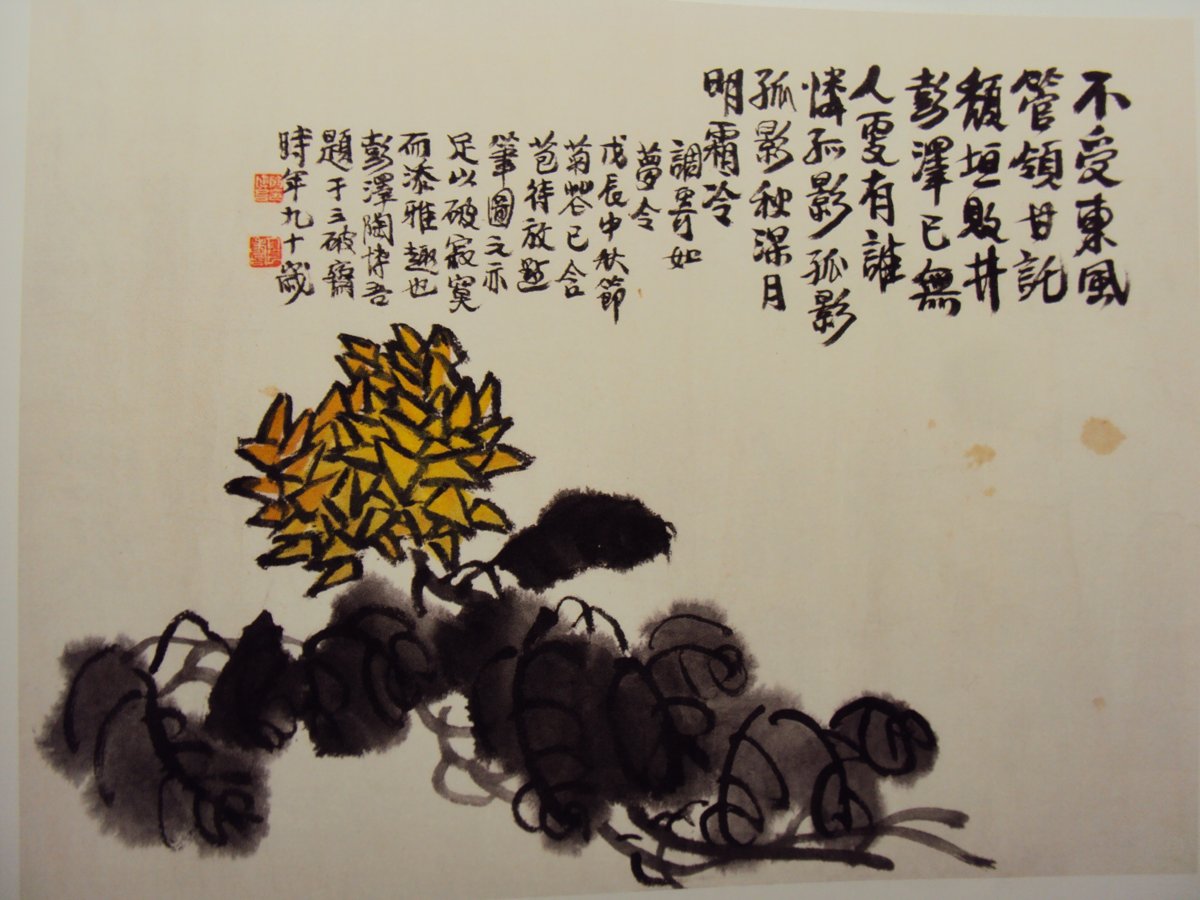 不受東風
管領甘託
頹垣敗井
彭澤已無
人更有誰
憐孤影孤影
孤影秋深月
明霜冷
調寄如
夢令
戊辰中秋節
菊蕾已含
苞待放點
筆圖之亦
足以破寂寞
而添雅趣也
彭澤陶博吾
題于三破齋
時年九十歲